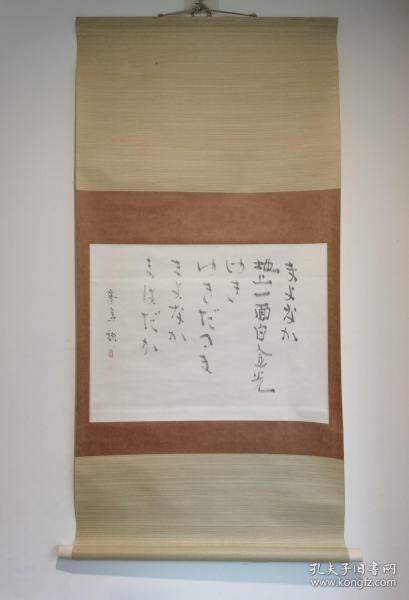 まよなか
地上一面白金光
ゆき
ゆきだるま
まよなか
まはだか
孔夫子旧书网
www.kongfz.com